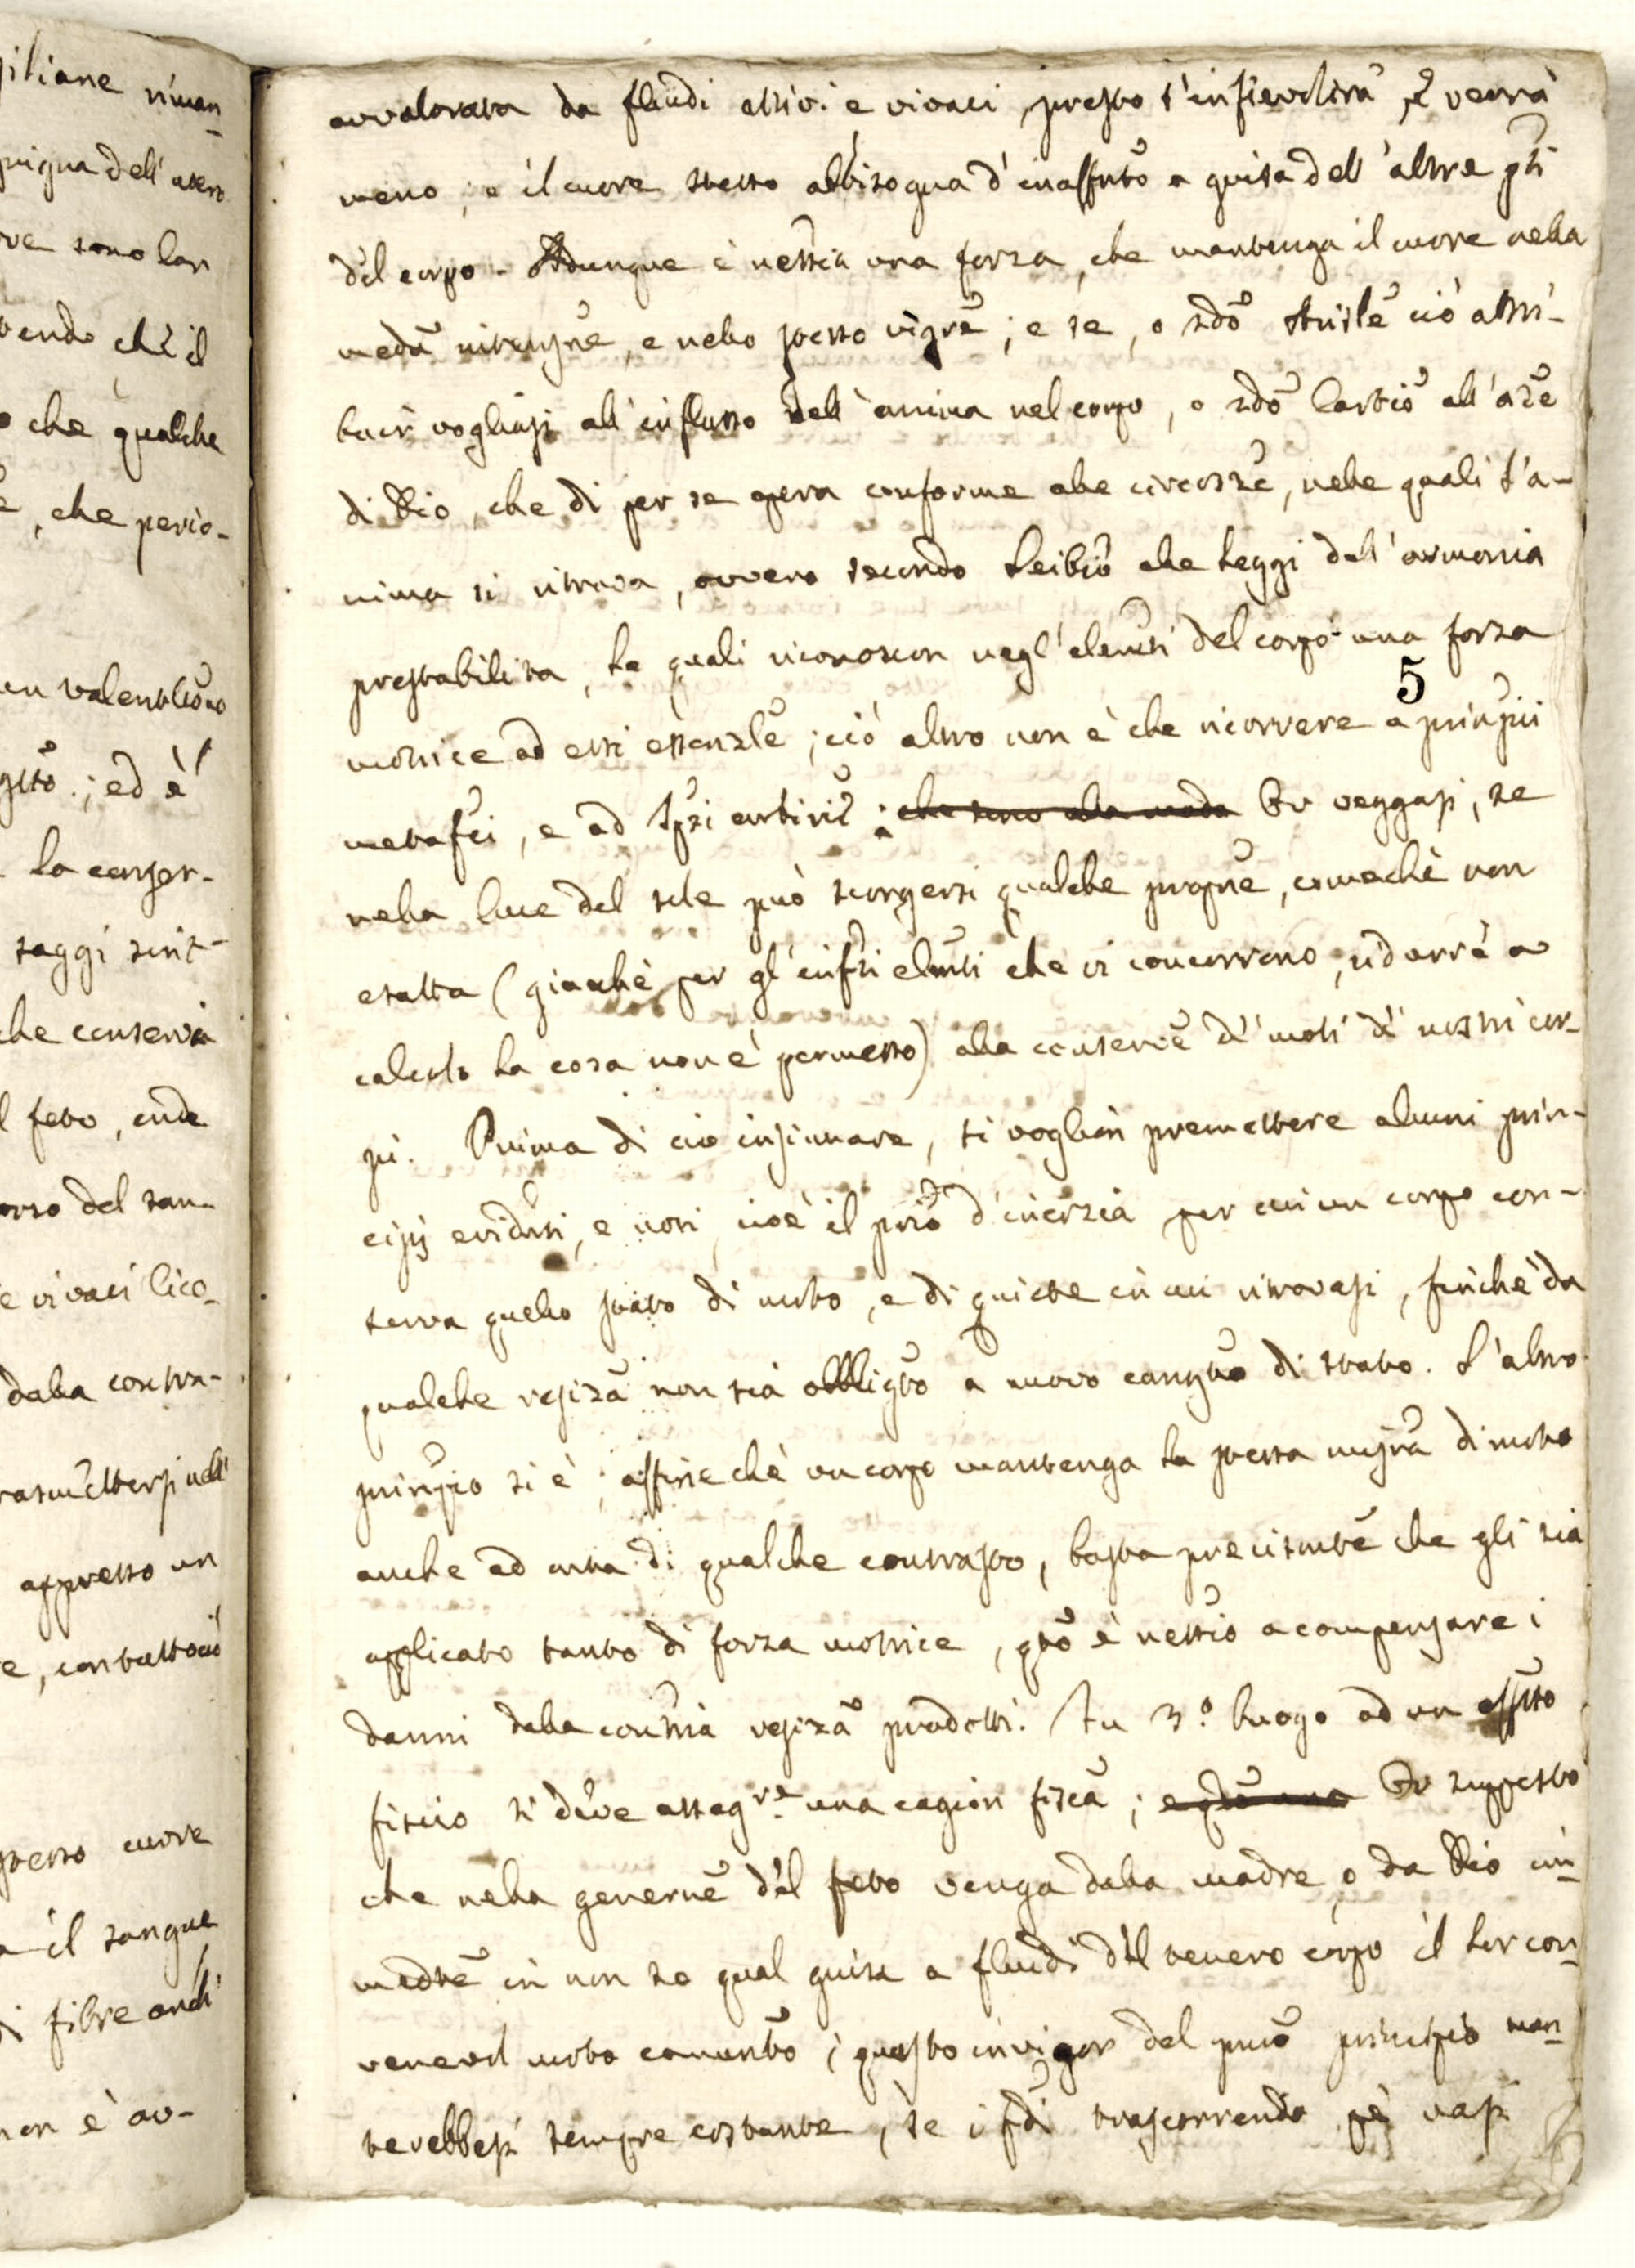 giliane riman-
pigna dell'
ve sono lar
vendo che il
o che qualche
e, che perio-
un
; ed è
la conser-
saggi
che conserva
l feto, onde
orso del san-
e vivaci lico-
dalla contra-
appresso un
e, contuttociò
stesso cuore
a il sangue
i fibre
non è av-
avvalorata da fluidi attivi e vivaci, presto s'infievolirà, e verrà
meno; e il cuore stesso abbisogna d'inaffnto a guisa dell'altre pti
del corpo. Adunque è nessria una forza, che mantenga il cuore nella
medã, e nello stesso vigre; e se, o sdo ciò attri-
buir vogliasi all'influsso dell'anima nel corpo, o sdo Cartio all'aze
di Dio, che di per se opera conforme alle circosze, nelle quali l'a-
nima si ritrova, ovvero secondo Leibio alle leggi dell'armonia
prestabilita, le quali riconoscon negl'elemti del corpo una forza
5
motrice ad essi essenzle; ciò altro non è che ricorrere a prinpii
metafci, e ad : Or veggasi, se
nella luce del sole può scorgersi qualche propne, comechè non
esatta (giacchè per gl'infti elmti che vi concorrono, ridurre a
calcolo la cosa non è permesso) alla conserve de' moti de' nostri cor-
pi. Prima di ciò insinuare, si voglion premettere alcuni prin-
cipj evidnti, e noti, cioè il prio d'inerzia per cui un corpo con-
serva quello stato di moto, e di quiete in cui ritrovasi, finchè da
qualche resiza non sia obbligto a nuovo cangto di stato. L'altro
prinpio si è, affinechè un corpo mantenga la stessa misra di moto
anche ad onta di qualche contrasto, basta precisamte che gli sia
applicato tanto di forza motrice, qto è nessrio a compensare i
danni dalla contria resiza prodotti. In 3.º luogo ad un effto
fisico si deve assegre una cagion fisca; Or supposto
che nella generne del feto venga dalla madre, o da Dio im-
in non so qual guisa a fluidi del tenero corpo il lor con-
venevol moto comunto; questo in vigor del primo principio man-
terebbesi sempre costante, se i fdi trascorrendo pe' vasi